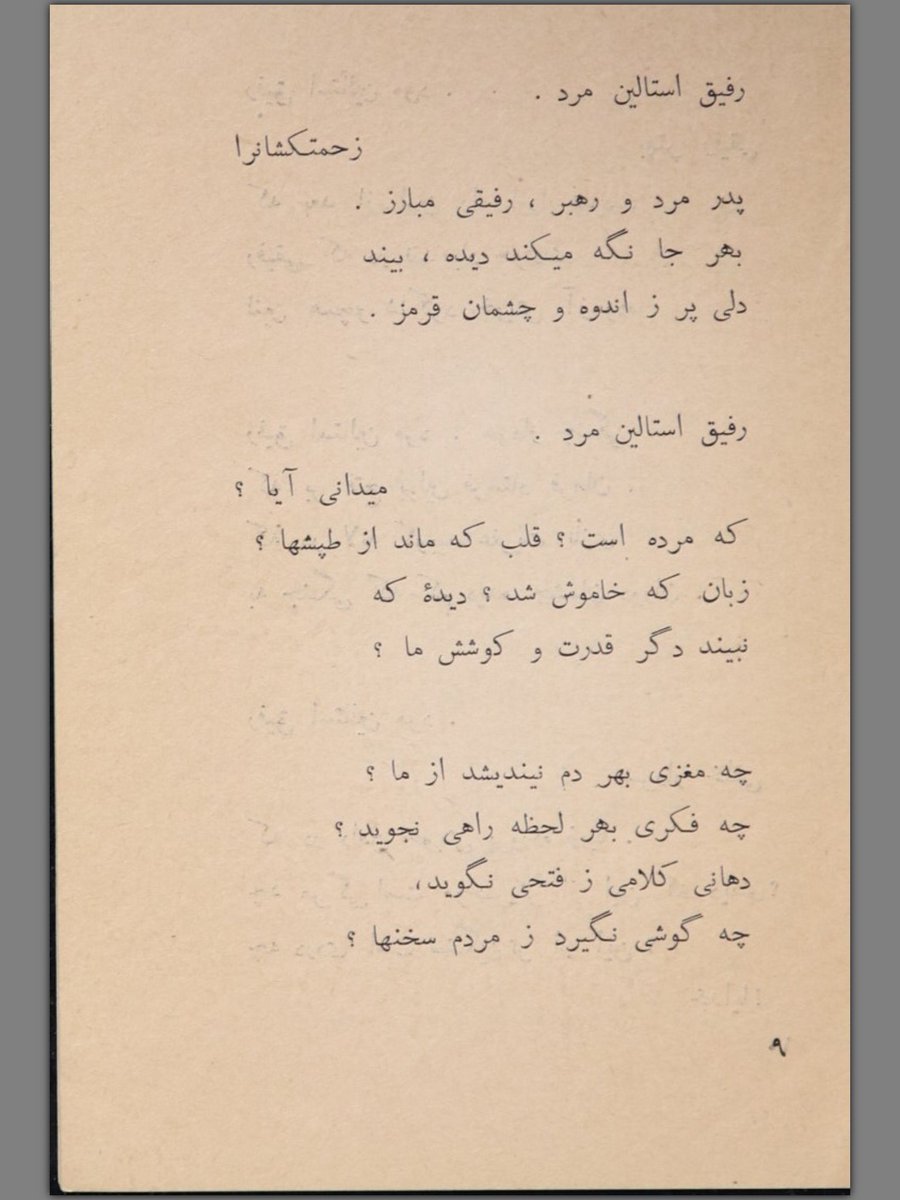 رفیق استالین مرد .
زحمتکشانرا
پدر مرد و رهبر ، رفیقی مبارز .
بهر جا نگه میکند دیده ، بیند
دلی پر ز اندوه و چشمان قرمز .
رفیق استالین مرد .
میدانی آیا ؟
که مرده است ؟ قلب که ماند از طپشها ؟
زبان که خاموش شد ؟ دیدهٔ که
نبیند دگر قدرت و کوشش ما ؟
چه مغزی بهر دم نیندیشد از ما ؟
چه فکری بهر لحظه راهی نجوید ؟
دهانی کلامی ز فتحی نگوید،
چه گوشی نگیرد ز مردم سخنها ؟
۹